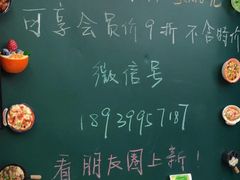 可享会员价9折不含时价
微信号
18939957187
看朋友圈上新！